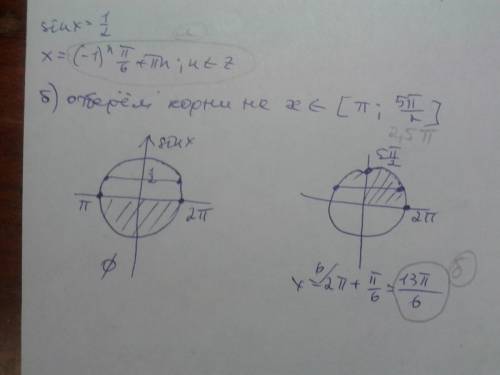 sin x = 1/2
x = (-1)ⁿ π/6 + πn; n ∈ Z
б) отберём корни на x ∈ [π; 5π/2]
2,5π
sin x
1/2
π
2π
∅
5π/2
2π
x = 2π + π/6 = 13π/6
б